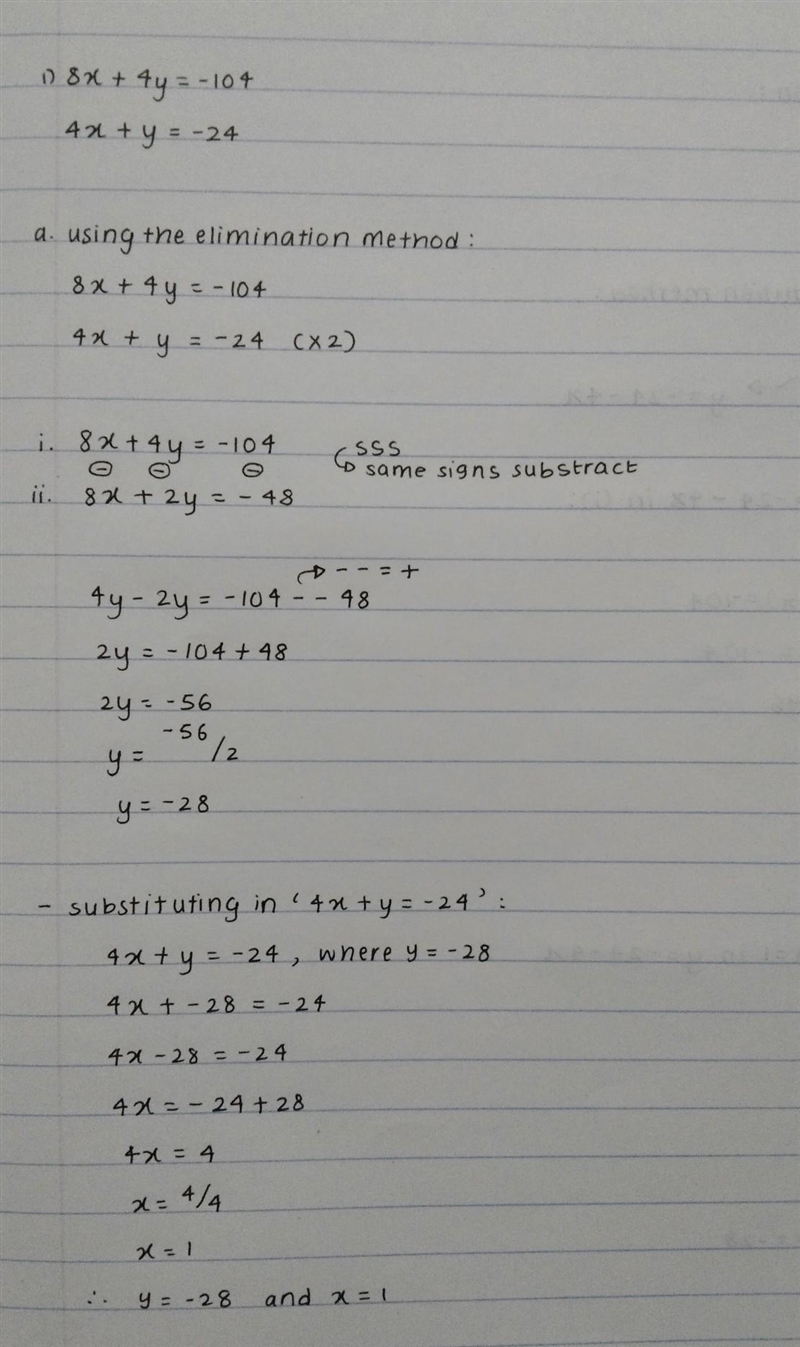 1) 8x + 4y = -104
4x + y = -24
a. using the elimination method :
8x + 4y = -104
4x + y = -24 (x2)
i. 8x + 4y = -104 ↳ SSS
⊖ ⊖ ⊖ same signs substract
ii. 8x + 2y = -48
↱ - - = +
4y - 2y = -104 - - 48
2y = -104 + 48
2y = -56
y = -56/2
y = -28
- substituting in ' 4x + y = -24 ' :
4x + y = -24 , where y = -28
4x + -28 = -24
4x - 28 = -24
4x = -24 + 28
4x = 4
x = 4/4
x = 1
∴ y = -28 and x = 1